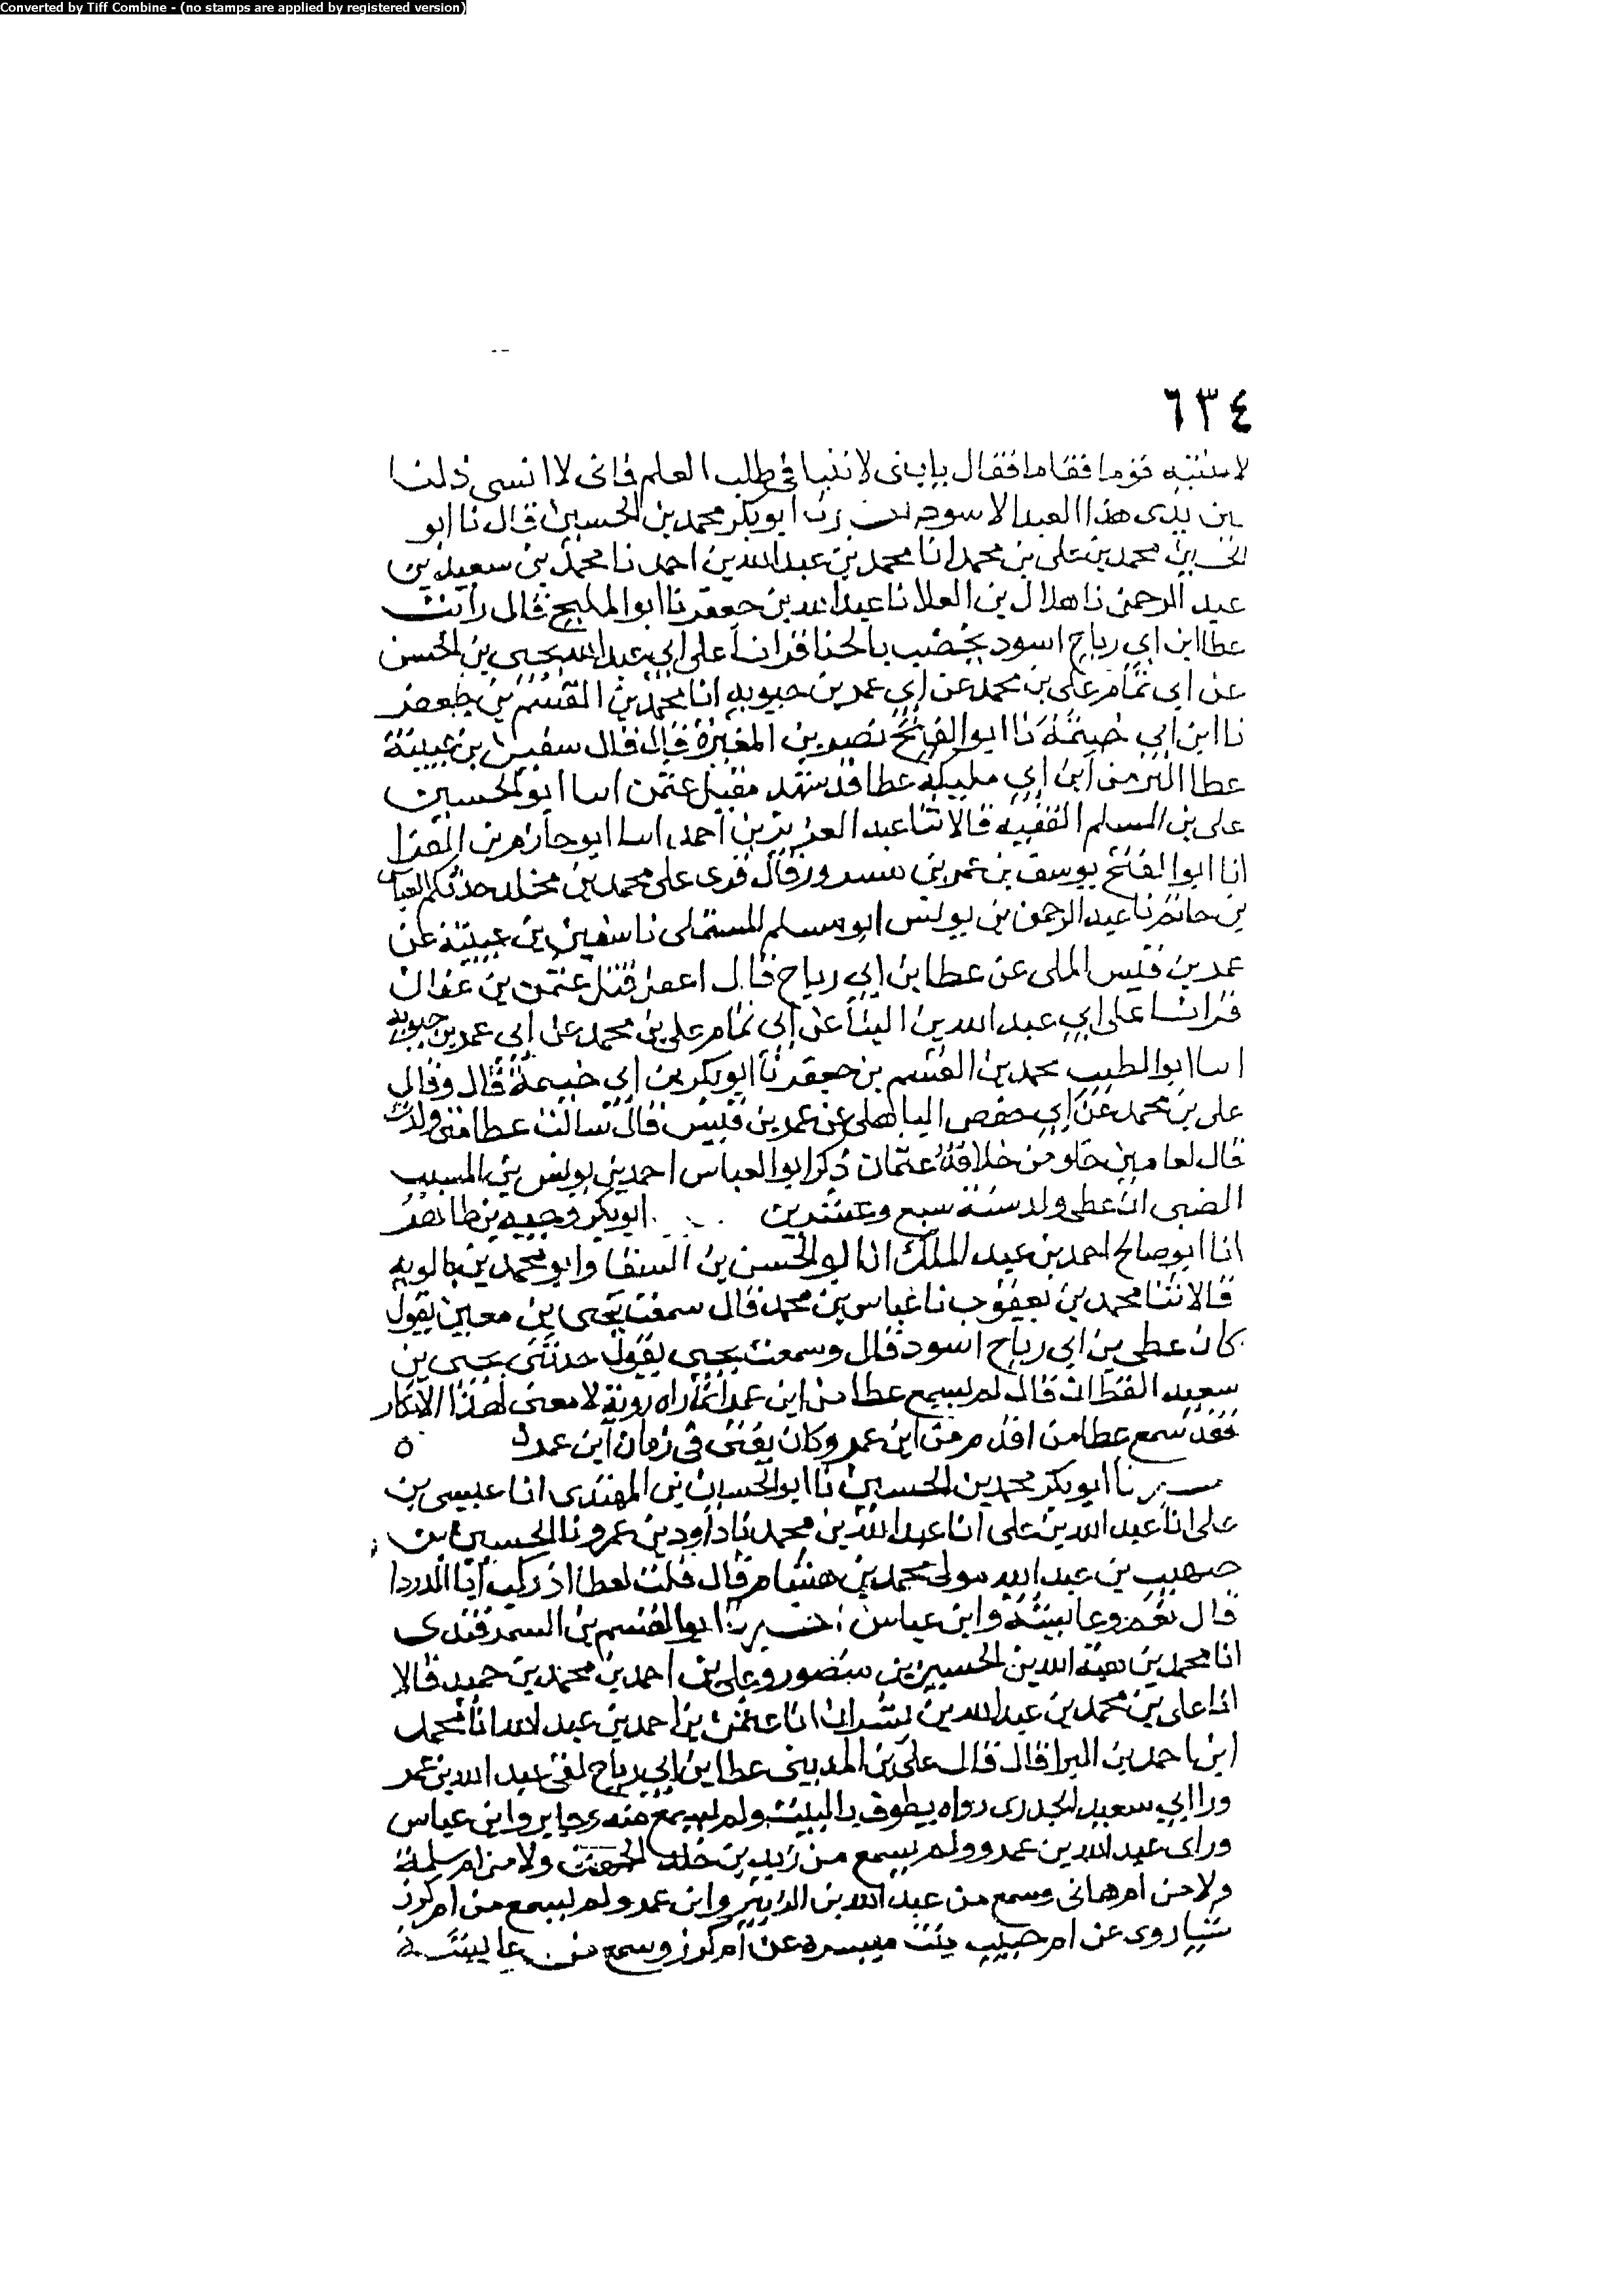 Converted by Tiff Combine - (no stamps are applied by registered version)
٦٣٤
لابنيه قوما فقاما فقال يا بني لا تنيا في طلب العلم فاني لا انسى ذلنا
بين يدى هذا العبد الاسود ابو بكر محمد بن الحسين قال نا ابو
محمد بن علي بن محمد انا محمد بن عبد الله بن احمد نا محمد بن سعيد بن
عبد الرحمن نا هلال بن العلا نا عبد الله بن جعفر نا ابو المليح قال رايت
عطا ابن ابي رباح اسود يخضب بالحنا قرانا على ابي عبد الله يحيى بن الحسن
عن ابي تمام علي بن محمد عن ابي عمر بن حيويه انا محمد بن القسم بن جعفر
نا ابن ابي خيثمة نا ابو الفتح نصر بن المغيرة قال قال سفين بن عيينة
عطا اكبر من ابن ابي مليكة عطا قد شهد مقتل عثمن انبا ابو الحسين
علي بن المسلم الفقيه قالا ثنا عبد العزيز بن احمد انبا ابو حازم بن الفرا
انا ابو الفتح يوسف بن عمر بن مسرور قال قرى على محمد بن مخلد حدثكم العباس
بن حاتم نا عبد الرحمن بن يونس ابو مسلم المستملى نا سفين بن عيينة عن
عمر بن قيس المكى عن عطا بن ابي رباح قال اعقل قتل عثمن بن عفان
قرانا على ابي عبد الله بن البنا عن ابي تمام علي بن محمد عن ابي عمر بن حيويه
انبا ابو الطيب محمد بن القسم بن جعفر نا ابو بكر بن ابي خيثمة قال وقال
علي بن محمد عن ابي حفص الباهلي عن عمر بن قيس قال سالت عطا متى ولدت
قال لعامين خلو من خلافة عثمان ذكر ابو العباس احمد بن يونس بن المسيب
الضبي ان عطى ولد سنة سبع وعشرين ابو بكر وجيه بن طاهر
انا ابو صالح احمد بن عبد الملك انا ابو الحسن بن السقا وابو محمد بن بالويه
قالا ثنا محمد بن يعقوب نا عباس بن محمد قال سمعت يحيى بن معين يقول
كان عطى بن ابي رباح اسود قال وسمعت يحيى يقول حدثني يحيى بن
سعيد القطان قال لم يسمع عطا من ابن عمر انما راه روية لا معنى لهذا الانكار
فقد سمع عطا من اقدم من ابن عمر وكان يفتى في زمان ابن عمر ٥
نا ابو بكر محمد بن الحسين نا ابو الحسين بن المهتدى انا عيسى بن
علي انا عبد الله بن علي انا عبد الله بن محمد نا داود بن عمرو نا الحسين بن
صهيب بن عبد الله مولى محمد بن هشام قال قلت لعطا ادركت ابا الدردا
قال نعم وعايشة وابن عباس اخبرنا ابو القسم بن السمرقندى
انا محمد بن هبة الله بن الحسين بن منصور وعلي بن احمد بن محمد بن حميد قالا
انا علي بن محمد بن عبد الله بن بشران انا عثمن بن احمد بن عبد الله انا محمد
ابن احمد بن البرا قال قال علي بن المديني عطا بن ابي رباح لقى عبد الله بن عمر
وراى ابي سعيد الخدرى رواه يطوف بالبيت ولم يسمع منه وجابر وابن عباس
وراى عبد الله بن عمرو ولم يسمع من زيد بن خلد الجهني ولا من ام سلمة
ولا من ام هانى وسمع من عبد الله بن الزبير وابن عمر ولم يسمع من ام كرز
شيا روى عن ام حبيب بنت ميسرة عن ام كرز وسمع من عايشة